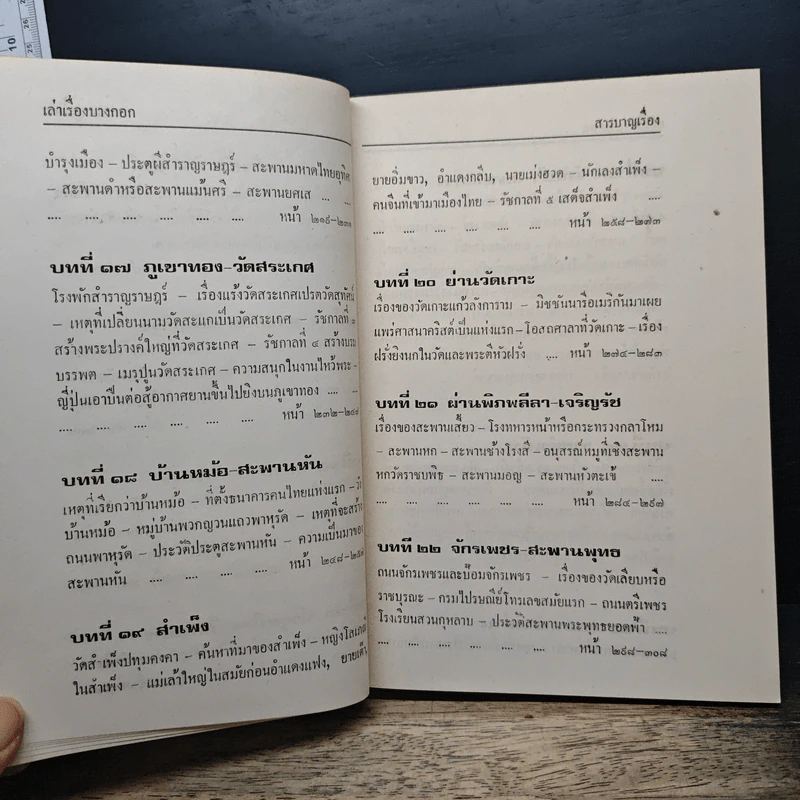 เล่าเรื่องบางกอก
บำรุงเมือง – ประตูผีสำราญราษฎร์ – สะพานมหาดไทยอุทิศ
– สะพานดำหรือสะพานแม้นศรี – สะพานยศเส .... ....
.... .... .... .... .... .... หน้า ๒๑๙–๒๓๑
บทที่ ๑๗ ภูเขาทอง–วัดสระเกศ
โรงพักสำราญราษฎร์ – เรื่องแร้งวัดสระเกศเปรตวัดสุทัศน์
– เหตุที่เปลี่ยนนามวัดสะแกเป็นวัดสระเกศ – รัชกาลที่
สร้างพระปรางค์ใหญ่ที่วัดสระเกศ – รัชกาลที่ ๔ สร้างบรม
บรรพต – เมรุปูนวัดสระเกศ – ความสนุกในงานไหว้พระ –
ญี่ปุ่นเอาปืนต่อสู้อากาศยานขึ้นไปยิงบนภูเขาทอง ....
.... .... .... .... .... .... หน้า ๒๓๒–๒๔๘
บทที่ ๑๘ บ้านหม้อ–สะพานหัน
เหตุที่เรียกว่าบ้านหม้อ – ที่ตั้งธนาคารคนไทยแห่งแรก –
บ้านหม้อ – หมู่บ้านพวกญวนแถวพาหุรัด – เหตุที่จะสร้าง
ถนนพาหุรัด – ประวัติประตูสะพานหัน – ความเป็นมาของ
สะพานหัน .... .... .... .... หน้า ๒๔๘–๒๕๗
บทที่ ๑๙ สำเพ็ง
วัดสำเพ็งปทุมคงคา – ค้นหาที่มาของสำเพ็ง – หญิงโสเภณี
ในสำเพ็ง – แม่เล้าใหญ่ในสมัยก่อนอำแดงแฟง, ยายเต๊า,
สารบาญเรื่อง
ยายอิ่มขาว, อำแดงกลีบ, นายเม่งฮวด – นักเลงสำเพ็ง –
คนจีนที่เข้ามาเมืองไทย – รัชกาลที่ ๕ เสด็จสำเพ็ง ....
.... .... .... .... .... หน้า ๒๕๘–๒๗๓
บทที่ ๒๐ ย่านวัดเกาะ
เรื่องของวัดเกาะแก้วลังการาม – มิชชันนารีอเมริกันมาเผย
แพร่ศาสนาคริสต์เป็นแห่งแรก – โอสถศาลาที่วัดเกาะ – เรื่อง
ฝรั่งยิงนกในวัดและพระตีหัวฝรั่ง .... หน้า ๒๗๔–๒๘๓
บทที่ ๒๑ ผ่านพิภพลีลา–เจริญรัช
เรื่องของสะพานเสี้ยว – โรงทหารหน้าหรือกระทรวงกลาโหม
– สะพานหก – สะพานช้างโรงสี – อนุสรณ์หมูที่เชิงสะพาน
หกวัดราชบพิธ – สะพานมอญ – สะพานหัวตะเข้ ....
.... .... .... .... .... .... หน้า ๒๘๔–๒๙๗
บทที่ ๒๒ จักรเพชร–สะพานพุทธ
ถนนจักรเพชรและป้อมจักรเพชร – เรื่องของวัดเลียบหรือ
ราชบุรณะ – กรมไปรษณีย์โทรเลขสมัยแรก – ถนนตรีเพชร
โรงเรียนสวนกุหลาบ – ประวัติสะพานพระพุทธยอดฟ้า ....
.... .... .... .... .... หน้า ๒๙๘–๓๐๘